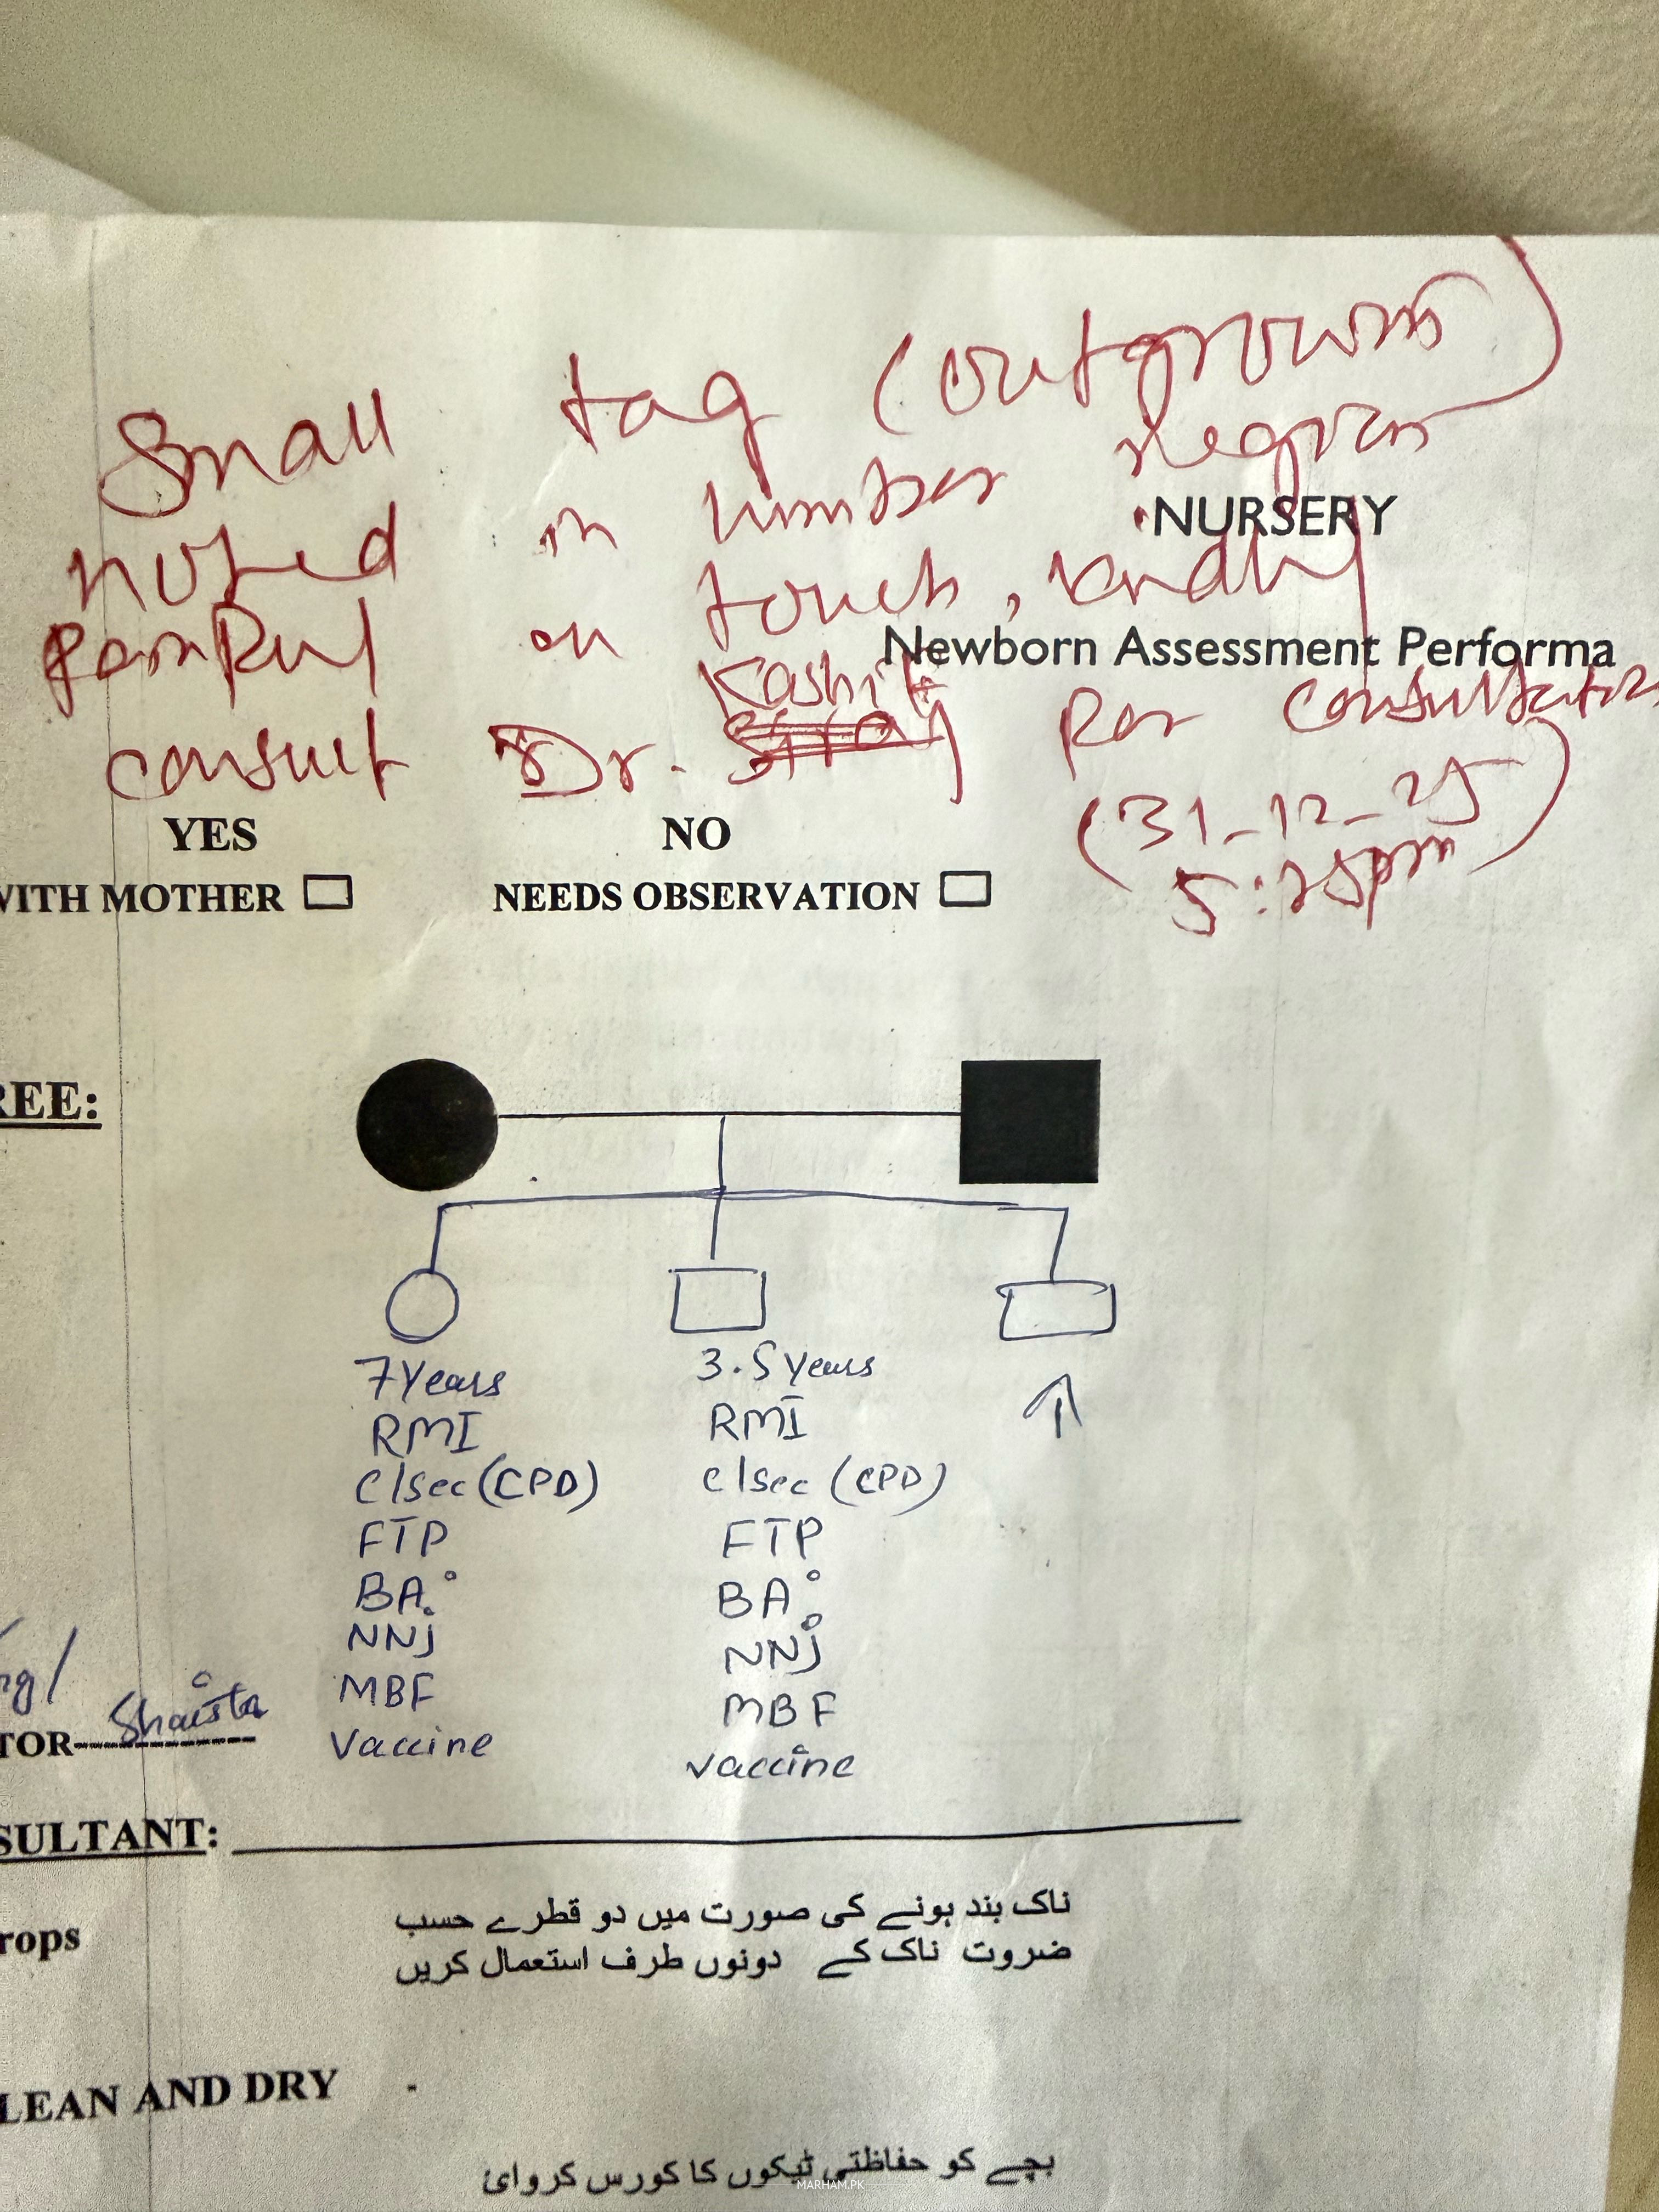 Small tag (outgrowth)
noted in lumbar region
NURSERY
painful on touch, kindly
Newborn Assessment Performa
Kashif
consult Dr. for consultation
(31-12-25
5:25pm)
YES NO
WITH MOTHER NEEDS OBSERVATION
REE:
7 Years 3.5 years
RMI RMI
C/Sec (CPD) C/Sec (CPD)
FTP FTP
BA° BA°
NNJ NNJ
MBF MBF
Vaccine vaccine
TOR Shaista
SULTANT:
ناک بند ہونے کی صورت میں دو قطرے حسب
rops
ضروت ناک کے دونوں طرف استعمال کریں
LEAN AND DRY
بچے کو حفاظتی ٹیکوں کا کورس کروائ
MARHAM.PK